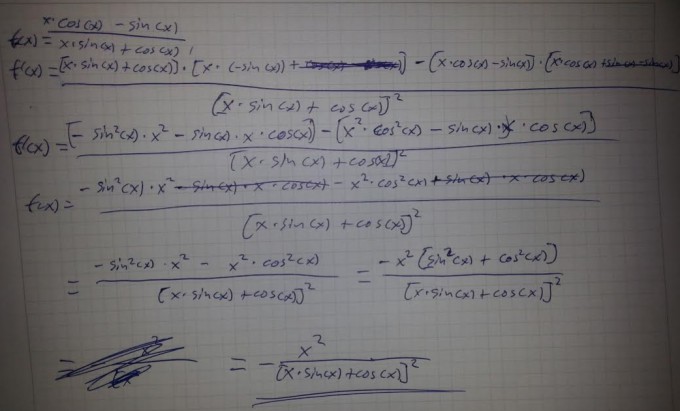 f(x) = x·cos(x) - sin(x) / x·sin(x) + cos(x)
f'(x) = [x·sin(x) + cos(x)] · [x·(-sin(x)) + ] - [x·cos(x) - sin(x)] · [x·cos(x) + sin(x) - sin(x)] / [x·sin(x) + cos(x)]²
f'(x) = [-sin²(x)·x² - sin(x)·x·cos(x)] - [x²·cos²(x) - sin(x)·x·cos(x)] / [x·sin(x) + cos(x)]²
f(x) = -sin²(x)·x² - sin(x)·x·cos(x) - x²·cos²(x) + sin(x)·x·cos(x) / [x·sin(x) + cos(x)]²
= -sin²(x)·x² - x²·cos²(x) / [x·sin(x) + cos(x)]² = -x² [sin²(x) + cos²(x)] / [x·sin(x) + cos(x)]²
= x² = - x² / [x·sin(x) + cos(x)]²